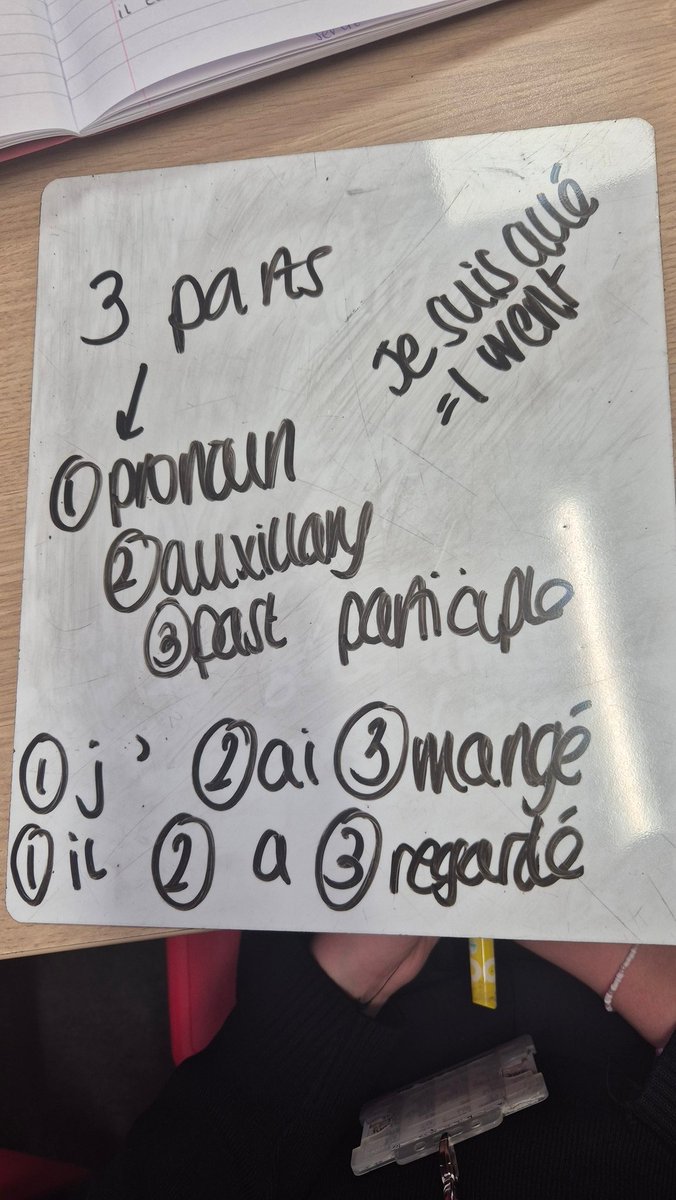 3 parts
Je suis allé
= I went
① pronoun
② auxillary
③ past participle
① j' ② ai ③ mangé
① il ② a ③ regardé